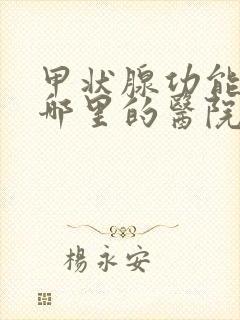 甲状腺功能
哪里的醫院
楊永安